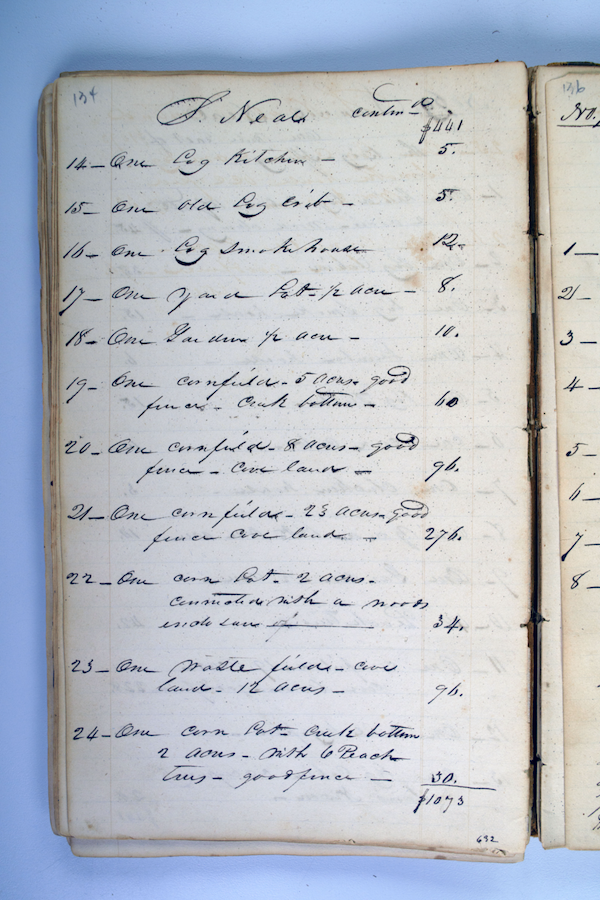 134
S. Neal contin-d
$441
14 — One Log Kitchen — 5.
15 — One old Log Crib — 5.
16 — One Log smoke house 12.
17 — One yard Lot — 1/2 acre — 8.
18 — One Garden 1/2 acre — 10.
19 — One cornfield — 5 acres good
fence — creek bottom — 60
20 — One cornfield — 8 acres — good
fence — cove land — 96.
21 — One cornfield — 23 acres — good
fence cove land — 276.
22 — One corn Lot — 2 acres —
connected with a woods
inclosure 34.
23 — One waste field — cove
land — 12 acres — 96.
24 — One corn Lot — creek bottom
2 acres — with 6 Peach
trees — good fence — 30.
$1073
632
136
No.
1 —
2 —
3 —
4 —
5 —
6 —
7 —
8 —